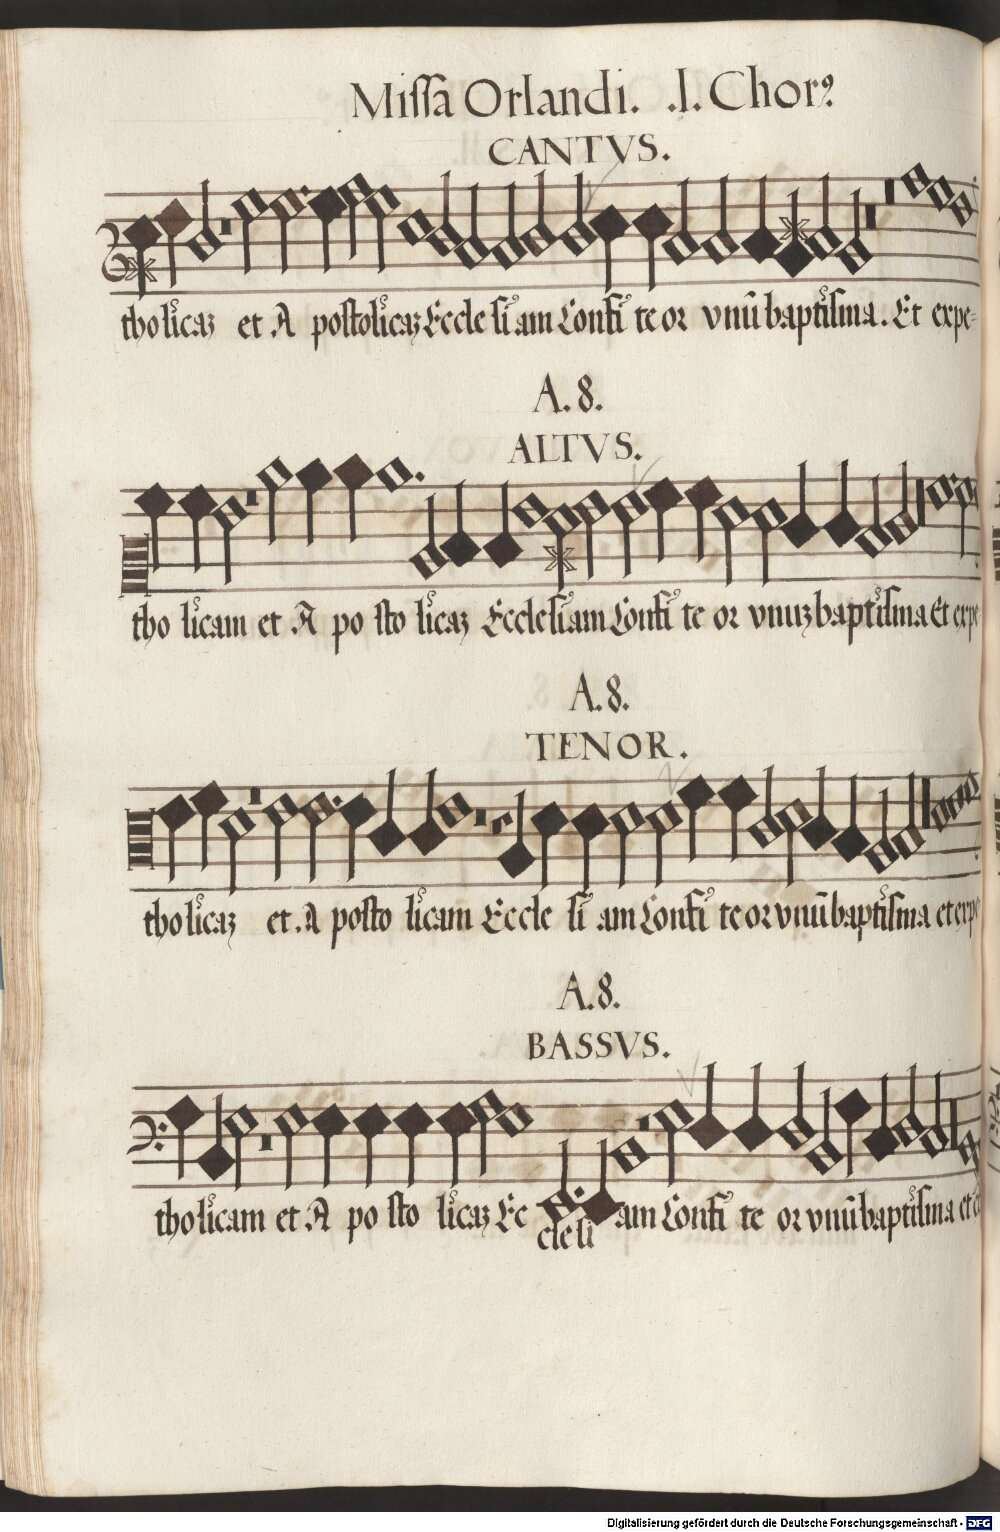 Missa Orlandi. .I. Chorꝰ
CANTVS.
tholicaz et A postolicaz Eccle si am Confi te or vnū baptisma. Et expe=
A. 8.
ALTVS.
tho licam et A po sto licaz Ecclesiam Confi te or vnuz baptisma Et expe
A. 8.
TENOR.
tholicaz et. A posto licam Eccle si am Confi te or vnū baptisma et expe
A. 8.
BASSVS.
tholicam et A po sto licaz Ec am Confi te or vnū baptisma et
cle si
Digitalisierung gefördert durch die Deutsche Forschungsgemeinschaft - DFG